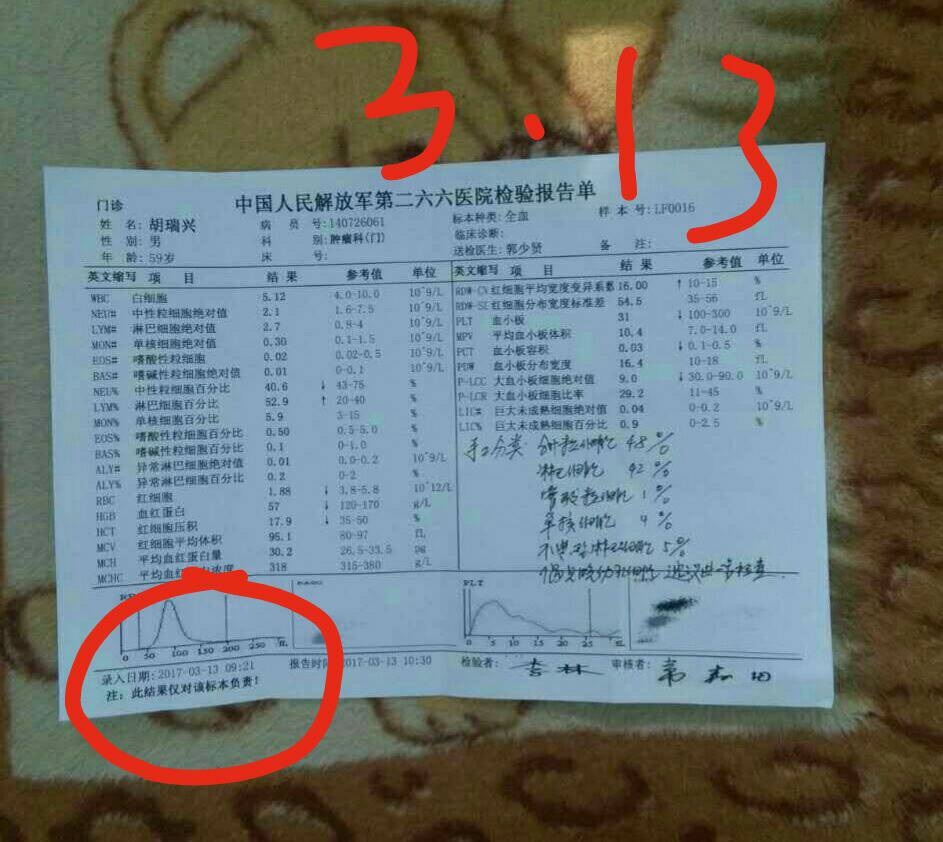 3.13
中国人民解放军第二六六医院检验报告单
门诊
姓 名: 胡瑞兴 病 员 号:140726061 标本种类: 全血 样 本 号: LF0016
性 别: 男 科 别: 肿瘤科(门) 临床诊断:
年 龄: 59岁 床 号: 送检医生: 郭少贤 备 注:
英文缩写 项 目 结 果 参考值 单位
WBC 白细胞 5.12 4.0-10.0 10^9/L
NEU# 中性粒细胞绝对值 2.1 1.6-7.5 10^9/L
LYM# 淋巴细胞绝对值 2.7 0.8-4 10^9/L
MON# 单核细胞绝对值 0.30 0.1-1.5 10^9/L
EOS# 嗜酸性粒细胞 0.02 0.02-0.5 10^9/L
BAS# 嗜碱性粒细胞绝对值 0.01 0-0.1 10^9/L
NEU% 中性粒细胞百分比 40.6 ↓ 43-75 %
LYM% 淋巴细胞百分比 52.9 ↑ 20-40 %
MON% 单核细胞百分比 5.9 3-15 %
EOS% 嗜酸性粒细胞百分比 0.50 0.5-5.0 %
BAS% 嗜碱性粒细胞百分比 0.1 0-1.0 %
ALY# 异常淋巴细胞绝对值 0.01 0.0-0.2 10^9/L
ALY% 异常淋巴细胞百分比 0.2 0-2 %
RBC 红细胞 1.88 ↓ 3.8-5.8 10^12/L
HGB 血红蛋白 57 ↓ 120-170 g/L
HCT 红细胞压积 17.9 ↓ 35-50 %
MCV 红细胞平均体积 95.1 80-97 fL
MCH 平均血红蛋白量 30.2 26.5-33.5 pg
MCHC 平均血红 浓度 318 315-380 g/L
英文缩写 项 目 结 果 参考值 单位
RDW-CV 红细胞平均宽度变异系数 16.00 ↑ 10-15 %
RDW-SD 红细胞分布宽度标准差 54.5 35-56 fL
PLT 血小板 31 ↓ 100-300 10^9/L
MPV 平均血小板体积 10.4 7.0-14.0 fL
PCT 血小板容积 0.03 ↓ 0.1-0.5 %
PDW 血小板分布宽度 16.4 10-18 fL
P-LCC 大血小板细胞绝对值 9.0 ↓ 30.0-90.0 10^9/L
P-LCR 大血小板细胞比率 29.2 11-45 %
LIC# 巨大未成熟细胞绝对值 0.04 0-0.2 10^9/L
LIC% 巨大未成熟细胞百分比 0.9 0-2.5 %
手工分类: 分叶粒细胞 48%
淋巴细胞 42%
嗜酸粒细胞 1%
单核细胞 4%
淋巴细胞 5%
0 50 100 150 200 250 fL
PLT
0 5 10 15 20 25 fL
录入日期: 2017-03-13 09:21 报告时间 2017-03-13 10:30 检验者: 审核者:
注: 此结果仅对该标本负责!